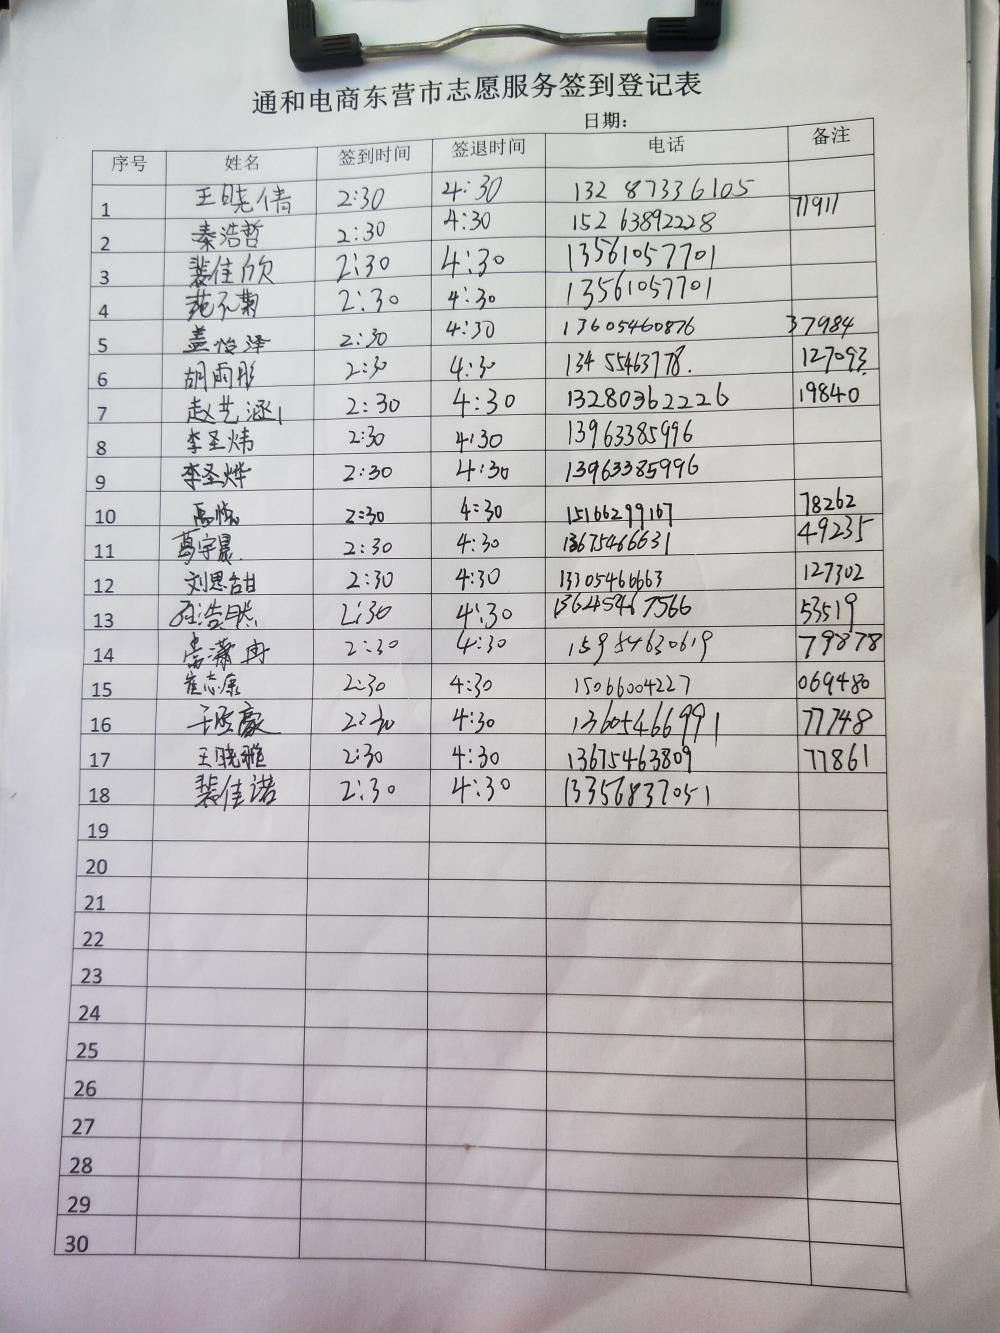 通和电商东营市志愿服务签到登记表
日期：
序号 姓名 签到时间 签退时间 电话 备注
1 王晓倩 2:30 4:30 132 87336105 71911
2 秦浩哲 2:30 4:30 152 63892228
3 裴佳欣 2:30 4:30 13561057701
4 2:30 4:30 13561057701
5 盖怡泽 2:30 4:30 13605460876 37984
6 胡雨彤 2:30 4:30 134 55463778. 127093.
7 赵艺涵 2:30 4:30 13280362226 19840
8 李圣炜 2:30 4:30 13963385996
9 李圣烨 2:30 4:30 13963385996
10 2:30 4:30 15166299167 78262
11 葛宇晨 2:30 4:30 13675466631 49235
12 刘思甜 2:30 4:30 13305460663 127302
13 2:30 4:30 53519
14 2:30 4:30 15954630619 79878
15 崔志康 2:30 4:30 15066004227 069480
16 2:30 4:30 13605466991 77748
17 王晓雅 2:30 4:30 13675463809 77861
18 裴佳诺 2:30 4:30 13356837051
19
20
21
22
23
24
25
26
27
28
29
30